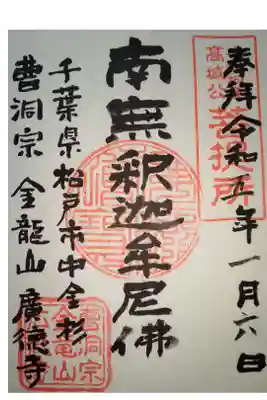 奉拝 令和五年 一月六日
高城公
菩提所
南無釈迦牟尼佛
千葉県松戸市中金杉
曹洞宗 金龍山 廣徳寺
曹洞宗
金竜山